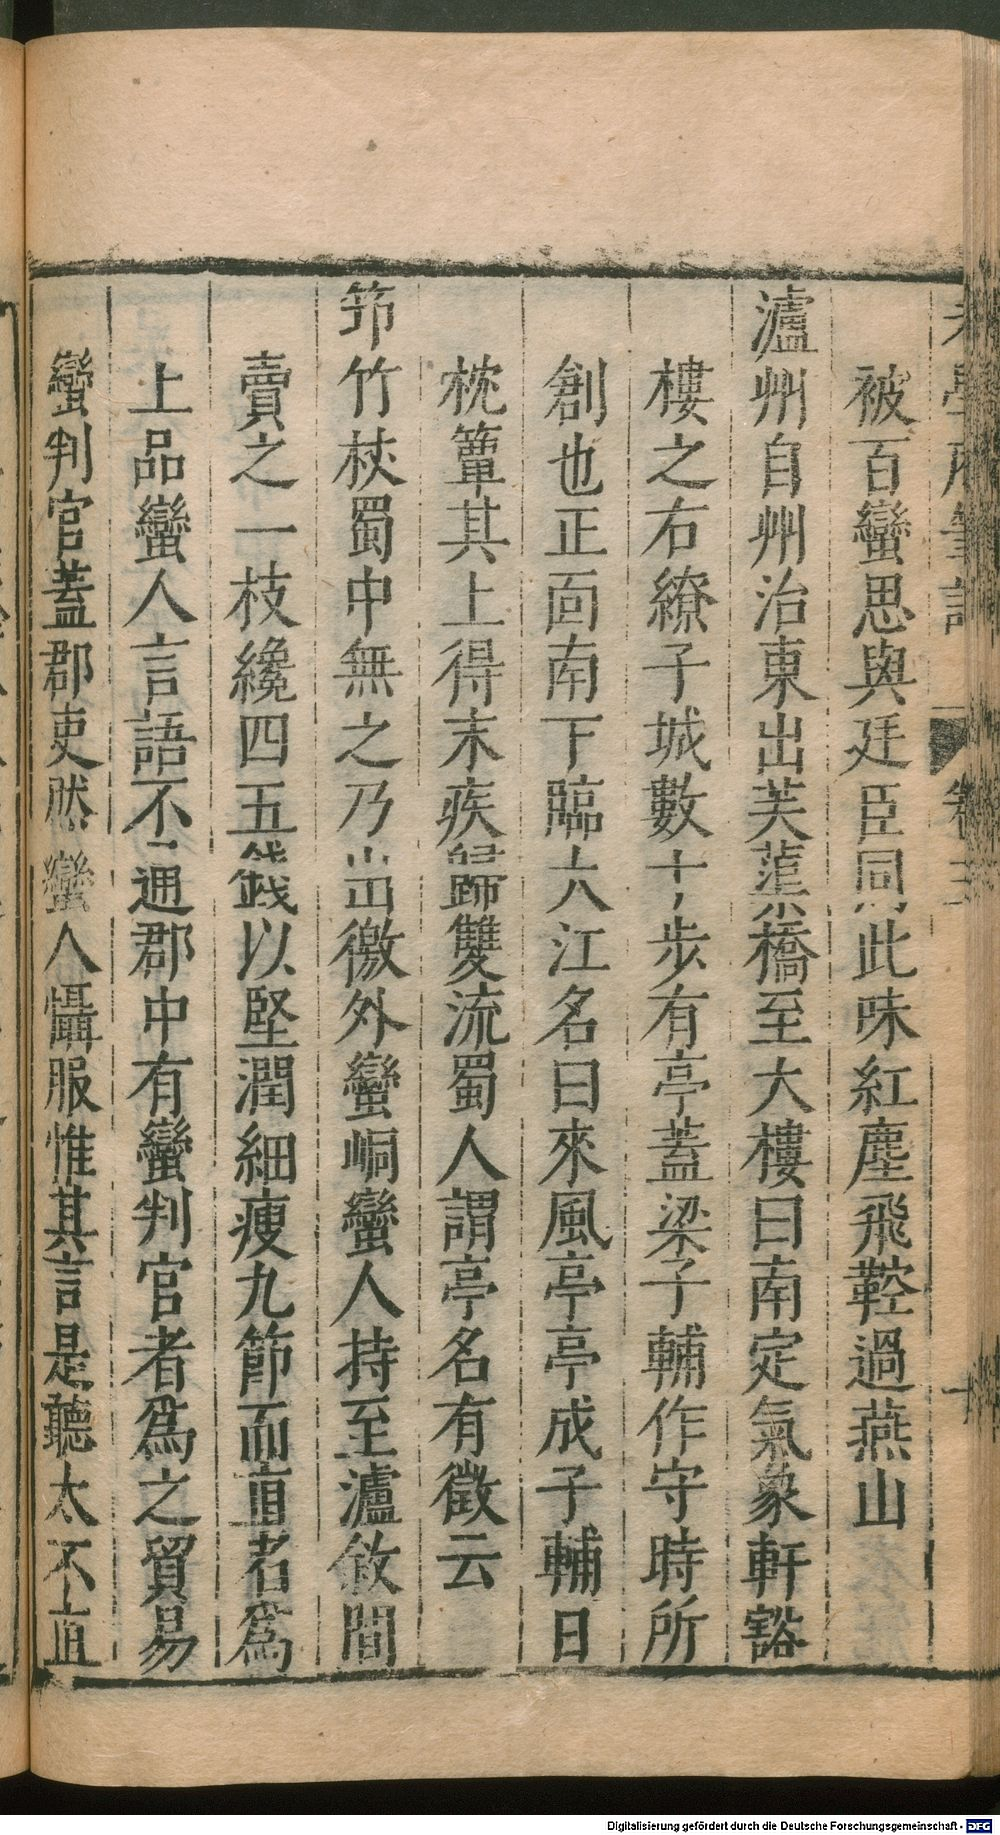 老學庵筆記 卷三 十
被百蠻思與廷臣同此味紅塵飛鞚過燕山
瀘州自州治東出芙蕖橋至大樓曰南定氣象軒豁
樓之右繚子城數十步有亭蓋梁子輔作守時所
創也正面南下臨大江名曰來風亭亭成子輔日
枕簟其上得末疾歸雙流蜀人謂亭名有徵云
笻竹杖蜀中無之乃出徼外蠻峒蠻人持至瀘敘間
賣之一枝纔四五錢以堅潤細瘦九節而直者為
上品蠻人言語不通郡中有蠻判官者為之貿易
蠻判官蓋郡吏然蠻人懾服惟其言是聽太不直
Digitalisierung gefördert durch die Deutsche Forschungsgemeinschaft - DFG